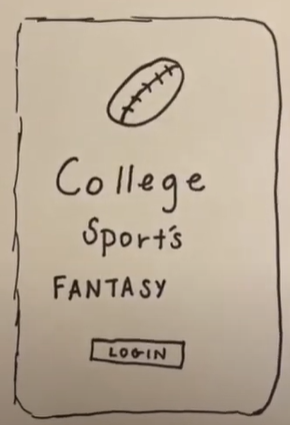 College
Sport's
FANTASY
LOGIN